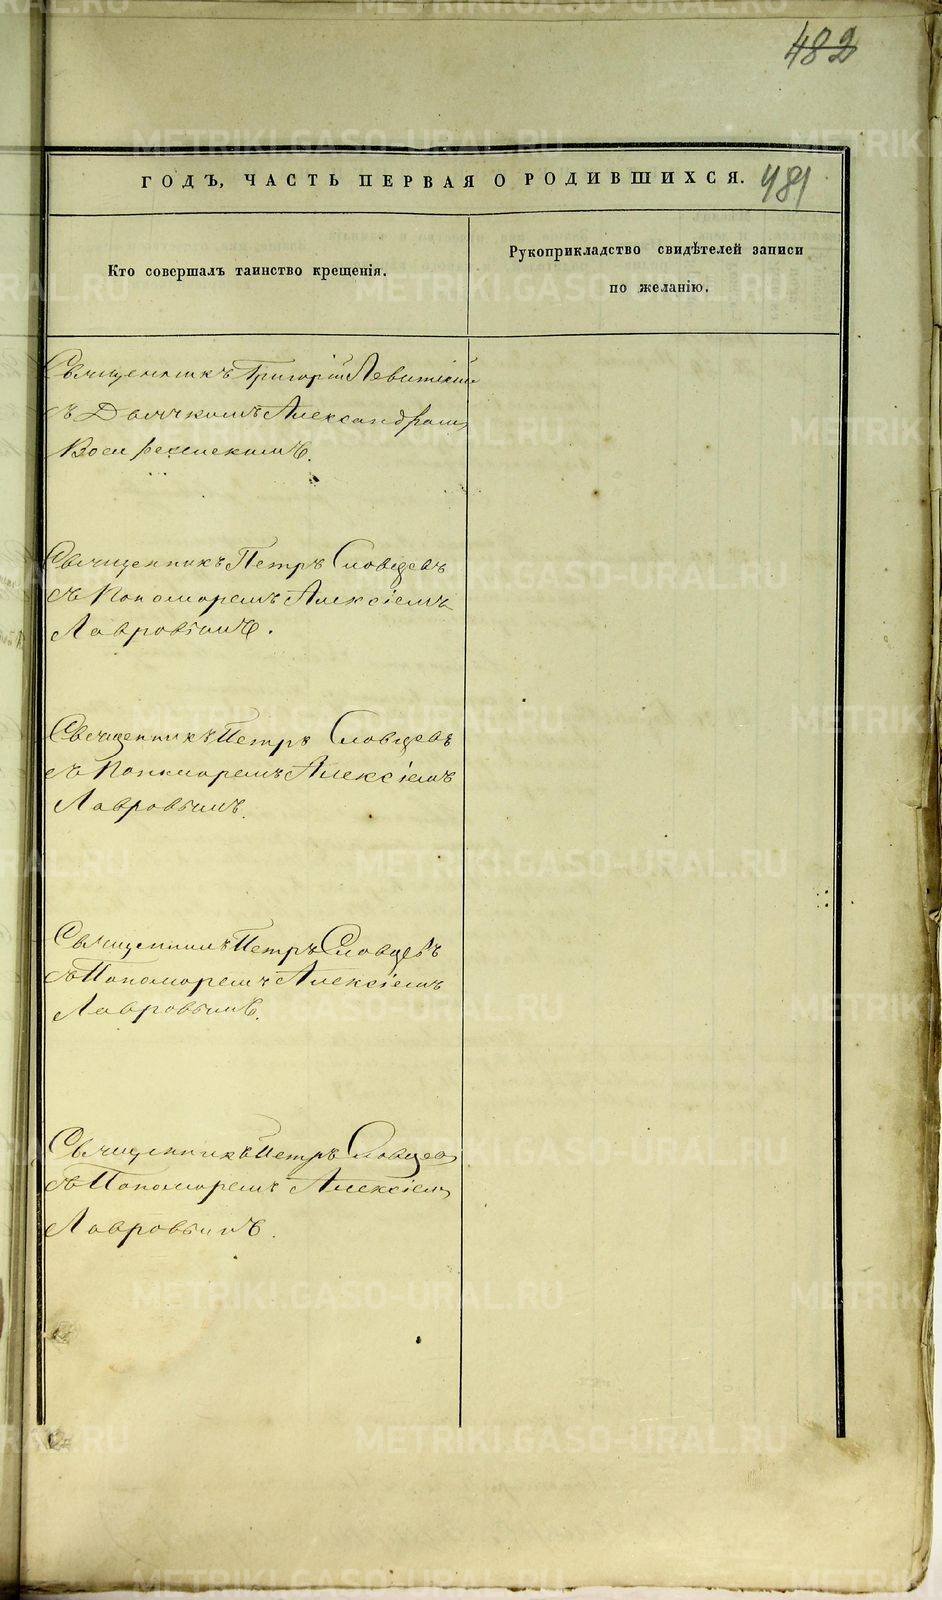 482
ГОДЪ, ЧАСТЬ ПЕРВАЯ О РОДИВШИХСЯ. 481
Кто совершалъ таинство крещенія.
Рукоприкладство свидѣтелей записи
по желанію.
Священникъ Григорій Левитскій
съ Дьячкомъ Александромъ
Воскресенскимъ.
Священникъ Петръ Словцевъ
съ Пономоремъ Алексіемъ
Лавровымъ.
Священникъ Петръ Словцевъ
съ Пономоремъ Алексіемъ
Лавровымъ.
Священникъ Петръ Словцевъ
съ Пономоремъ Алексіемъ
Лавровымъ.
Священникъ Петръ Словцевъ
съ Пономоремъ Алексіемъ
Лавровымъ.
METRIKI.GASO-URAL.RU